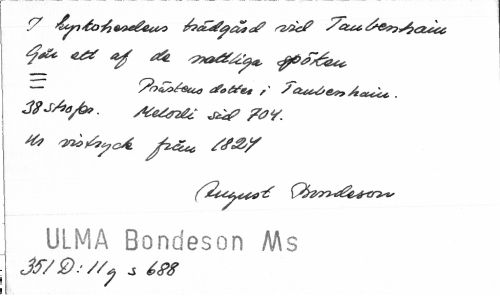 I kyrkoherdens trädgård vid Taubenhain
Går ett af de nattliga spöken
Prästens dotter i Taubenhain.
38 strofer. Melodi sid 704.
Ur vistryck från 1824
August Bondeson
ULMA Bondeson Ms
351 D: 11 g s 688